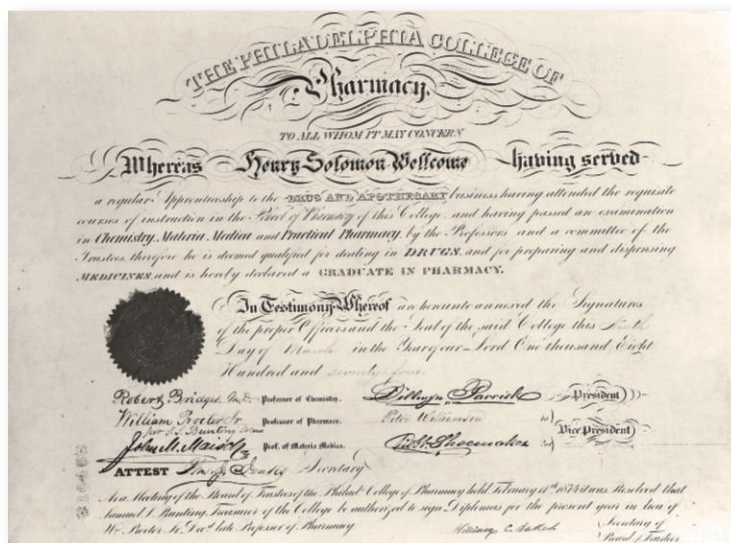 THE PHILADELPHIA COLLEGE OF
Pharmacy.
TO ALL WHOM IT MAY CONCERN
Whereas Henry Solomon Wellcome having served
a regular Apprenticeship to the DRUG AND APOTHECARY business having attended the requisite
courses of instruction in the School of Pharmacy of this College and having passed an examination
in Chemistry, Materia Medica and Practical Pharmacy, by the Professors and a committee of the
Trustees, therefore he is deemed qualified for dealing in DRUGS, and for preparing and dispensing
MEDICINES, and is hereby declared a GRADUATE IN PHARMACY.
In Testimony Whereof are hereunto annexed the Signatures
of the proper Officers and the Seal of the said College this
Day of March in the Year of our Lord One thousand Eight
Hundred and seventy four
Robert Bridges, M.D. Professor of Chemistry. Dillwyn Parrish President
William Procter Jr Professor of Pharmacy. Peter Williamson
per S. S. Bunting Vice President
John M. Maisch Prof. of Materia Medica. Shoemaker
ATTEST Secretary
At a Meeting of the Board of Trustees of the Philada College of Pharmacy held February 1874 it was Resolved that
Samuel S. Bunting, Treasurer of the College be authorized to sign Diplomas for the present year in lieu of
Wm Procter Jr. Decd late Professor of Pharmacy
William C. Secretary of
Board of Trustees